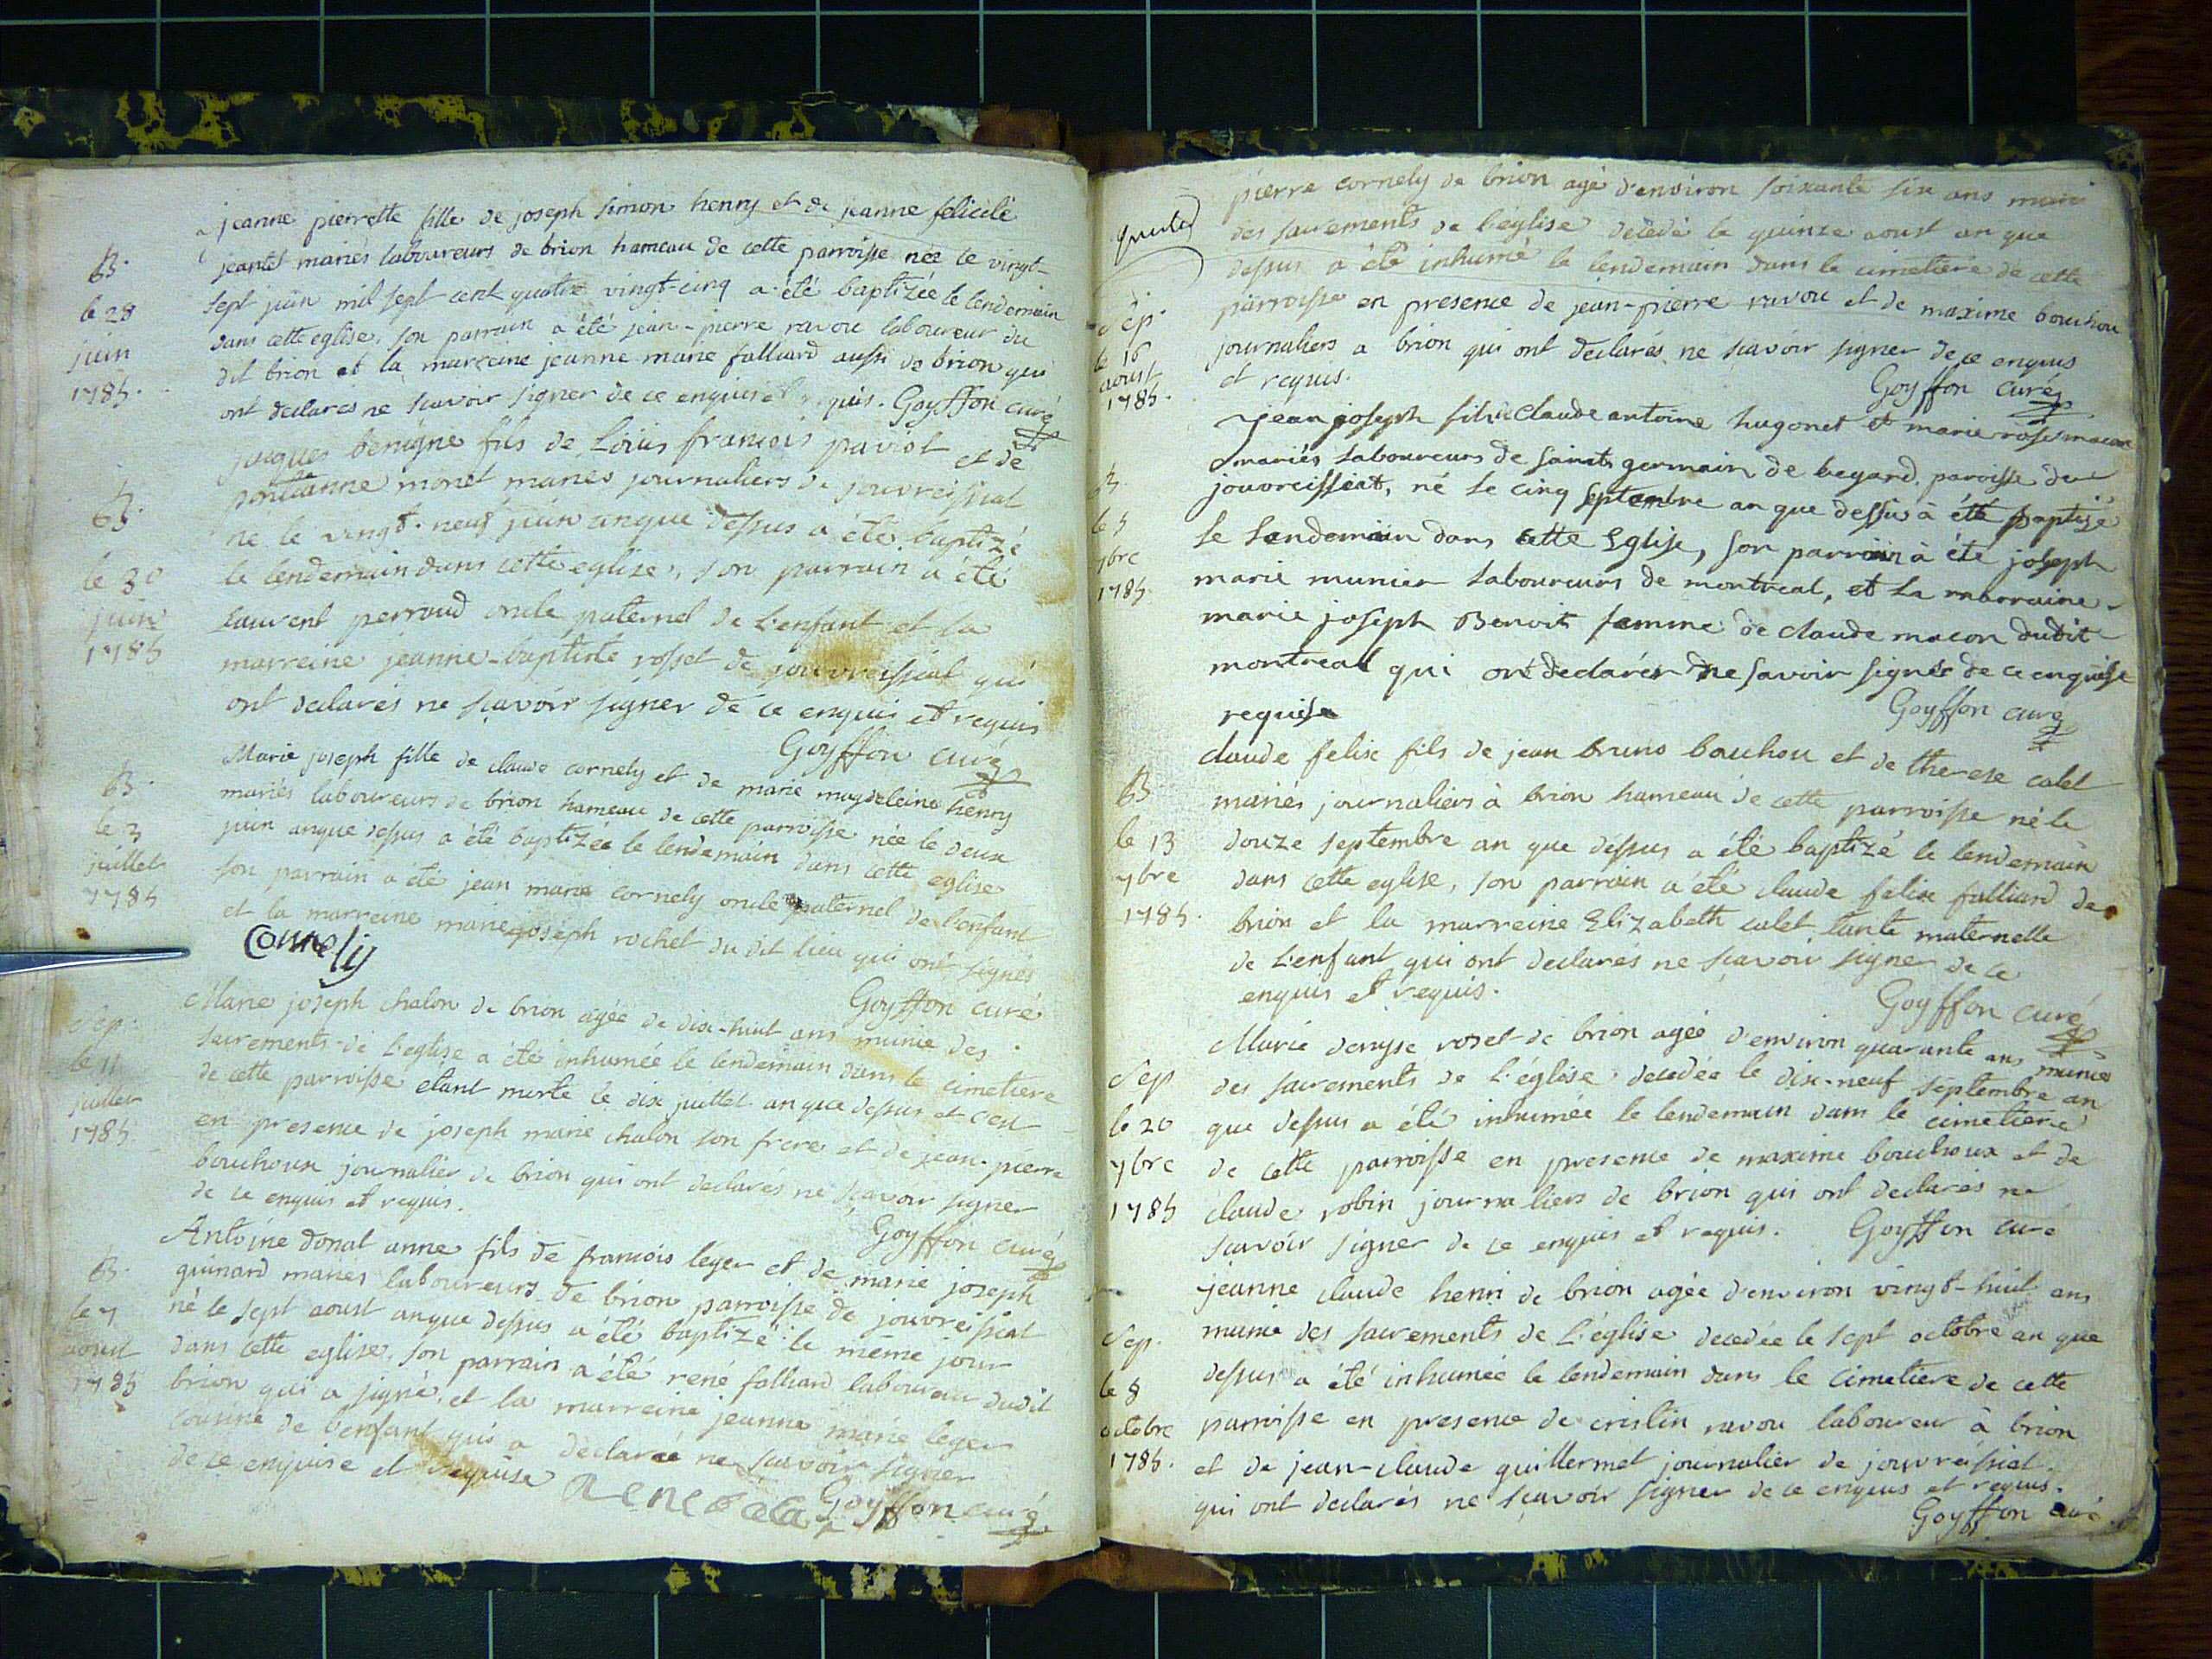 jeanne pierrette fille de joseph simon henry et de jeanne felicité
B.
jeantet mariés laboureurs de brion hameau de cette parroisse née le vingt-
le 28
sept juin mil sept cent quatre vingt-cinq a été baptizée le lendemain
juin
dans cette eglise, son parrain a été jean-pierre ravou laboureur du
1785.
dit brion et la marreine jeanne marie falliard aussi de brion qui
ont declarés ne scavoir signer de ce enquis et requis. Goyffon curé
jacques benigne fils de Loüis francois paviot et de
anne monet mariés journaliers de jouvreissiat
B.
né le vingt-neuf juin anque dessus a été baptizé
le 30
le lendemain dans cette eglise, son parrain a été
juin
Laurent perraud oncle paternel de L'enfant et la
1785
marreine jeanne-baptiste rosset de jouvreissiat qui
ont declarés ne scavoir signer de ce enquis et requis
Goyffon curé
Marie joseph fille de claude cornely et de marie magdeleine henry
B.
mariés laboureurs de brion hameau de cette parroisse née le deux
le 3
juin anque dessus a été baptizée le lendemain dans cette eglise
juillet
son parrain a été jean marie cornely oncle paternel de l'enfant
1785
et la marreine marie joseph rochet du dit lieu qui ont signés
Cornely
Goyffon curé
Marie joseph chalon de brion agée de dix-huit ans munie des
Sep.
sacrements de L'eglise a été inhumée le lendemain dans le cimetiere
le 11
de cette parroisse etant morte le dix juillet an que dessus et c'est
juillet
en presence de joseph marie chalon son frere et de jean-pierre
1785
bouchoux journalier de brion qui ont declarés ne scavoir signer
de ce enquis et requis.
Goyffon curé
Antoine donat anne fils de francois leger et de marie joseph
B.
guinard mariés laboureurs de brion parroisse de jouvreissiat
le 7
né le sept aoust anque dessus a été baptizé le même jour
aoust
dans cette eglise, son parrain a été rené falliard laboureur dudit
1785
brion qui a signé, et la marreine jeanne marie leger
cousine de l'enfant qui a declarée ne scavoir signer
de ce enquise et requise
Goyffon curé
pierre cornely de brion agé d'environ soixante six ans muni
des sacrements de l'église decedé le quinze aoust an que
dessus a été inhumé le lendemain dans le cimetiere de cette
Sep.
parroisse en presence de jean-pierre ravou et de maxime bouchou
le 16
journaliers a brion qui ont declarés ne scavoir signer de ce enquis
aoust
1785.
et requis.
Goyffon curé
jean joseph fils claude antoine hugonet et marie rose macon
mariés Laboureurs de saint germain de beyard paroisse de
B.
jouvreissiat, né le cinq septembre an que dessus à été baptisé
le 5
le Lendemain dans cette Eglise, son parrain à été joseph
7bre
marie munier Laboureurs de montreal, et La marraine
1785.
marie joseph Benoit femme de claude macon dudit
montreal qui ont declarés ne savoir signer de ce enquise
requise
Goyffon curé
claude felix fils de jean bruno bouchou et de therese calet
B
mariés journaliers à brion hameau de cette parroisse né le
le 13
douze septembre an que dessus a été baptizé le lendemain
7bre
dans cette eglise, son parrain a été claude felix falliard de
1785.
brion et la marreine Elizabeth calet tante maternelle
de L'enfant qui ont declarés ne scavoir signer de ce
enquis et requis.
Goyffon curé
Marie denyse roset de brion agée d'environ quarante ans munie
Sep
des sacrements de L'église decedée le dix-neuf septembre an
le 20
que dessus a été inhumée le lendemain dans le cimetiere
7bre
de cette parroisse en presence de maxime bouchoux et de
1785
claude robin journaliers de brion qui ont declarés ne
scavoir signer de ce enquis et requis. Goyffon curé
jeanne claude henri de brion agée d'environ vingt-huit ans
Sep.
munie des sacrements de L'église decedée le sept octobre an que
le 8
dessus a été inhumée le lendemain dans le cimetiere de cette
octobre
parroisse en presence de cristin ravou laboureur à brion
1785.
et de jean-claude guillermet journalier de jouvreissiat.
qui ont declarés ne scavoir signer de ce enquis et requis.
Goyffon curé.